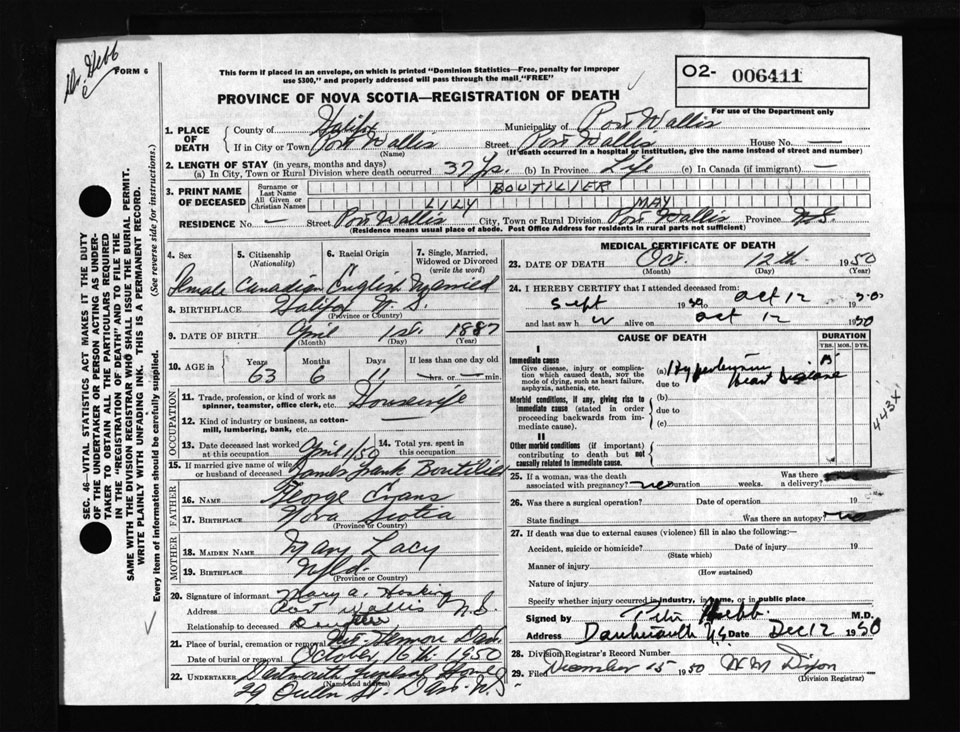 Dr. Hebb
FORM 6
This form if placed in an envelope, on which is printed "Dominion Statistics—Free, penalty for improper
use $300," and properly addressed will pass through the mail "FREE"
O2- 006411
For use of the Department only
PROVINCE OF NOVA SCOTIA—REGISTRATION OF DEATH
1. PLACE OF DEATH County of Halifax Municipality of Port Wallis
If in City or Town Port Wallis Street Port Wallis House No.
(Name) (If death occurred in a hospital or institution, give the name instead of street and number)
2. LENGTH OF STAY (in years, months and days)
(a) In City, Town or Rural Division where death occurred 37 yrs. (b) In Province Life (c) In Canada (if immigrant) —
3. PRINT NAME OF DECEASED Surname or Last Name BOUTILIER
All Given or Christian Names LILY MAY
RESIDENCE No. — Street Port Wallis City, Town or Rural Division Port Wallis Province N.S.
(Residence means usual place of abode. Post Office Address for residents in rural parts not sufficient)
SEC. 46—VITAL STATISTICS ACT MAKES IT THE DUTY
OF THE UNDERTAKER OR PERSON ACTING AS UNDER-
TAKER TO OBTAIN ALL THE PARTICULARS REQUIRED
IN THE "REGISTRATION OF DEATH" AND TO FILE THE
SAME WITH THE DIVISION REGISTRAR WHO SHALL ISSUE THE BURIAL PERMIT.
WRITE PLAINLY WITH UNFADING INK. THIS IS A PERMANENT RECORD.
Every item of information should be carefully supplied. (See reverse side for instructions.)
4. Sex 5. Citizenship (Nationality) 6. Racial Origin 7. Single, Married, Widowed or Divorced (write the word)
Female Canadian English Married
8. BIRTHPLACE Halifax N.S.
(Province or Country)
9. DATE OF BIRTH April 1st. 1887
(Month) (Day) (Year)
10. AGE in Years Months Days If less than one day old
63 6 11 — hrs. or — min.
OCCUPATION
11. Trade, profession, or kind of work as
spinner, teamster, office clerk, etc. Housewife
12. Kind of industry or business, as cotton-
mill, lumbering, bank, etc.
13. Date deceased last worked at this occupation April 1/50 14. Total yrs. spent in this occupation
15. If married give name of wife or husband of deceased James Frank Boutilier
FATHER
16. Name George Evans
17. BIRTHPLACE Nova Scotia
(Province or Country)
MOTHER
18. MAIDEN NAME Mary Lacy
19. BIRTHPLACE Nfld.
(Province or Country)
20. Signature of informant Mary A. Hosking
Address Port Wallis N.S.
Relationship to deceased Daughter
21. Place of burial, cremation or removal Mt. Hermon Dart.
Date of burial or removal October 16th 1950
22. UNDERTAKER Dartmouth Funeral Home
(Name and address)
29 Queen St. Dart. N.S.
MEDICAL CERTIFICATE OF DEATH
23. DATE OF DEATH Oct. 12th 1950
(Month) (Day) (Year)
24. I HEREBY CERTIFY that I attended deceased from:
Sept 1950 to Oct 12 1950
and last saw h er alive on Oct 12 1950
CAUSE OF DEATH DURATION
YRS. MOS. DYS.
I
Immediate cause
Give disease, injury or complica-
tion which caused death, not the
mode of dying, such as heart failure,
asphyxia, asthenia, etc.
(a) Hypertension
due to Heart Disease
Morbid conditions, if any, giving rise to
immediate cause (stated in order
proceeding backwards from im-
mediate cause).
(b)
due to
(c)
443X
II
Other morbid conditions (if important)
contributing to death but not
causally related to immediate cause.
25. If a woman, was the death Was there
associated with pregnancy? no Duration weeks. a delivery?
26. Was there a surgical operation? Date of operation 19
State findings Was there an autopsy? no
27. If death was due to external causes (violence) fill in also the following:—
Accident, suicide or homicide? Date of injury 19
(State which)
Manner of injury
(How sustained)
Nature of injury
Specify whether injury occurred in industry, in home, or in public place
Signed by Peter Hebb M.D.
Address Dartmouth N.S. Date Dec 12 1950
28. Division Registrar's Record Number
29. Filed December 15th 1950 W M Dixon
(Division Registrar)